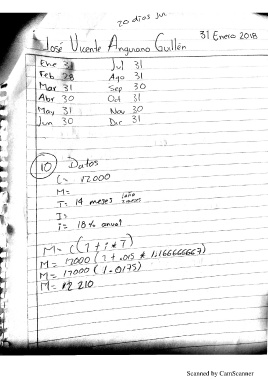 20 dias
31 Enero 2018
José Vicente Anguano Gullén
Ene 31 Jul 31
Feb 28 Ago 31
Mar 31 Sep 30
Abr 30 Oct 31
May 31 Nov 30
Jun 30 Dic 31
10 Datos
C= 12000
M=
T= 14 meses
I=
i= 18% anual
M= C(1+i*T)
M= 12000 (1+.015 * 1.166666667)
M= 12000 (1.0175)
M= 12 210
Scanned by CamScanner